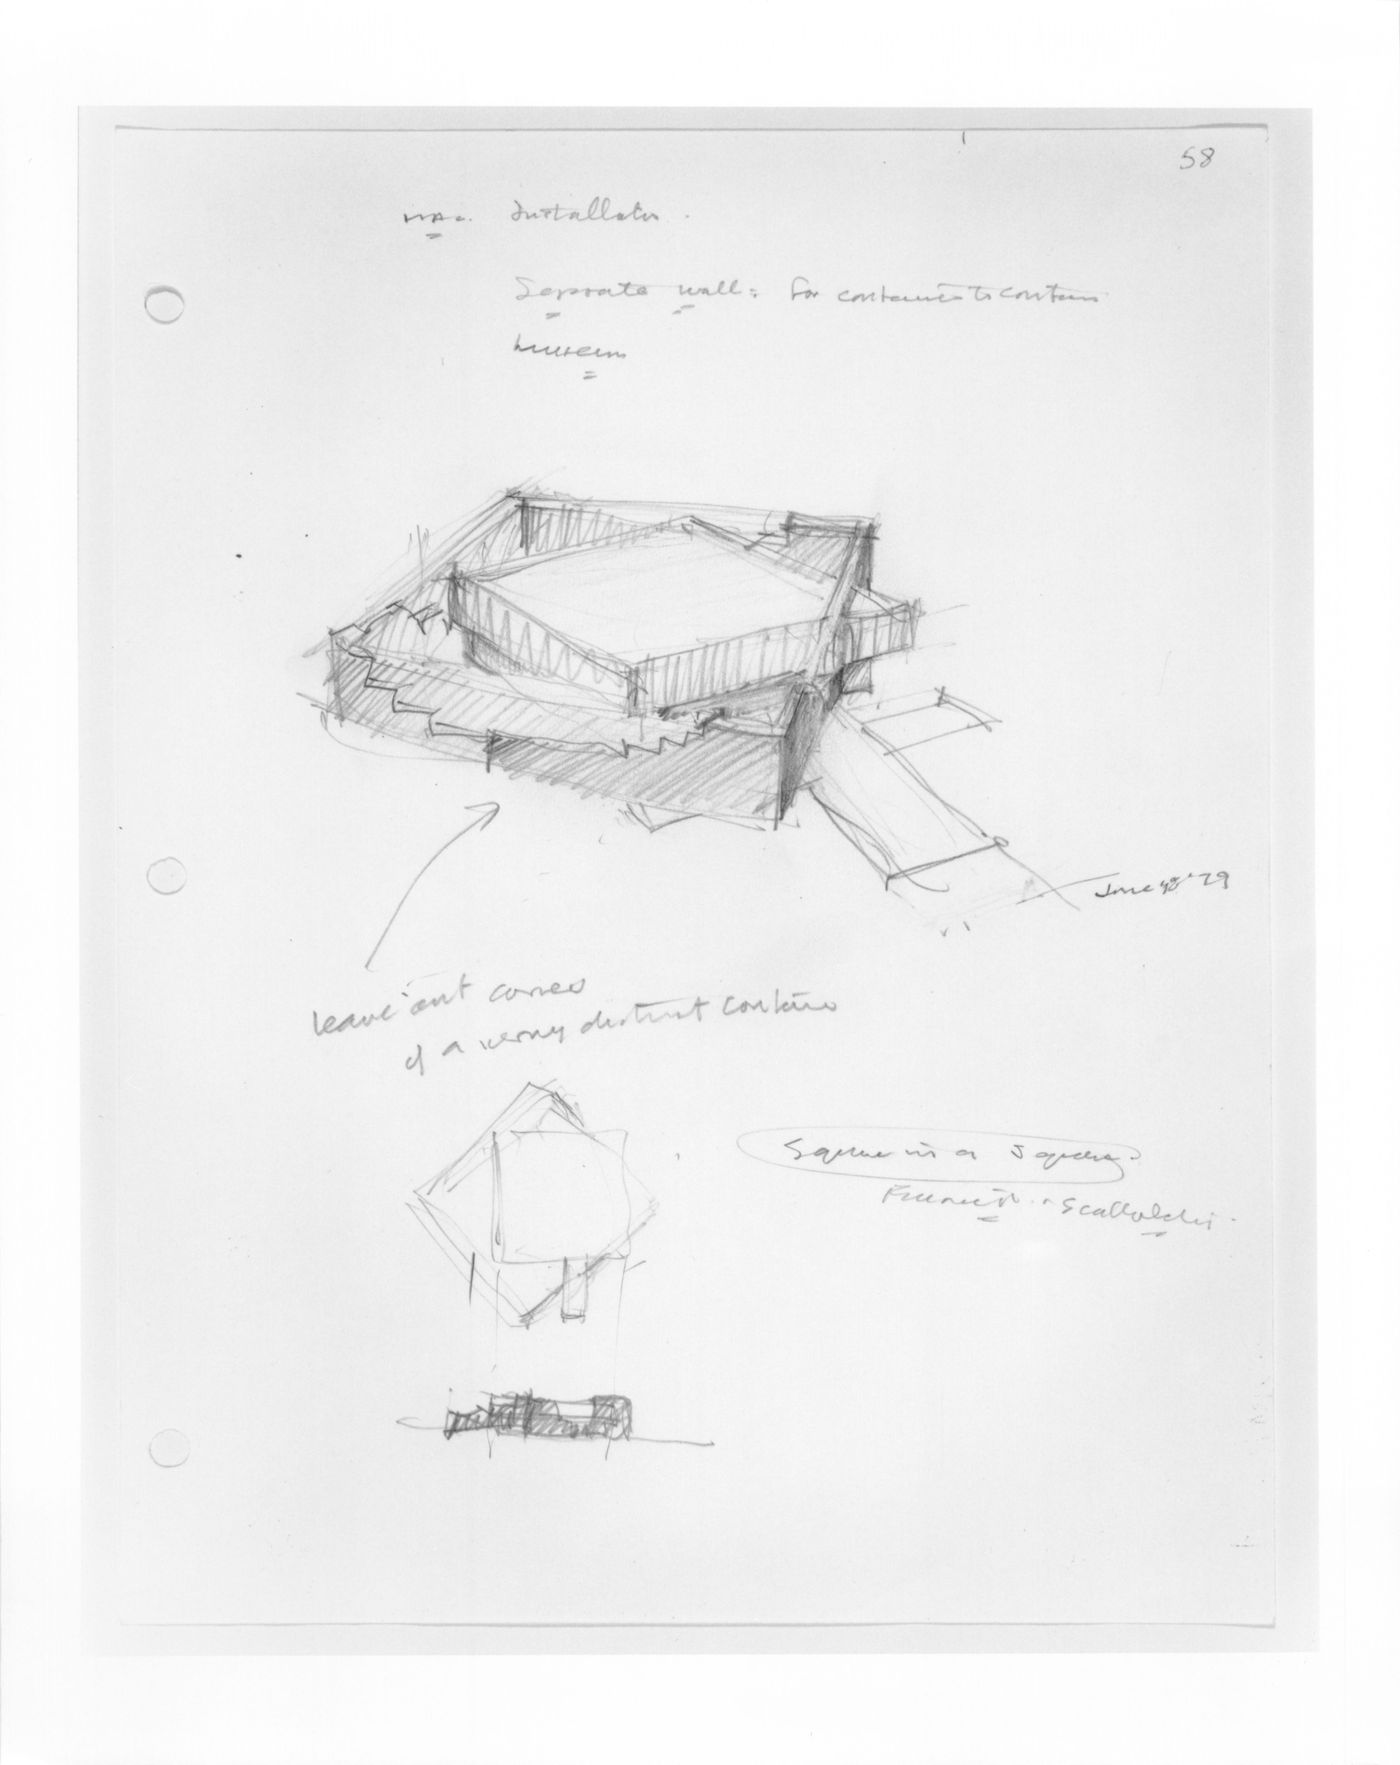 58
Installation.
Separate wall: for container to contain
museum
June '79
leave out corner
of a very distinct container
Square in a Square